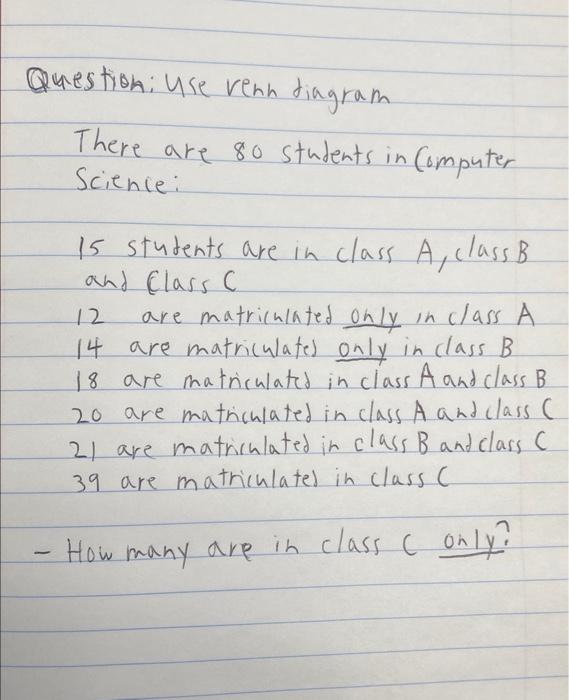 Question: Use venn diagram
There are 80 students in Computer
Science:
15 students are in class A, class B
and Class C
12 are matriculated only in class A
14 are matriculated only in class B
18 are matriculated in class A and class B
20 are matriculated in class A and class C
21 are matriculated in class B and class C
39 are matriculated in class C
- How many are in class C only?